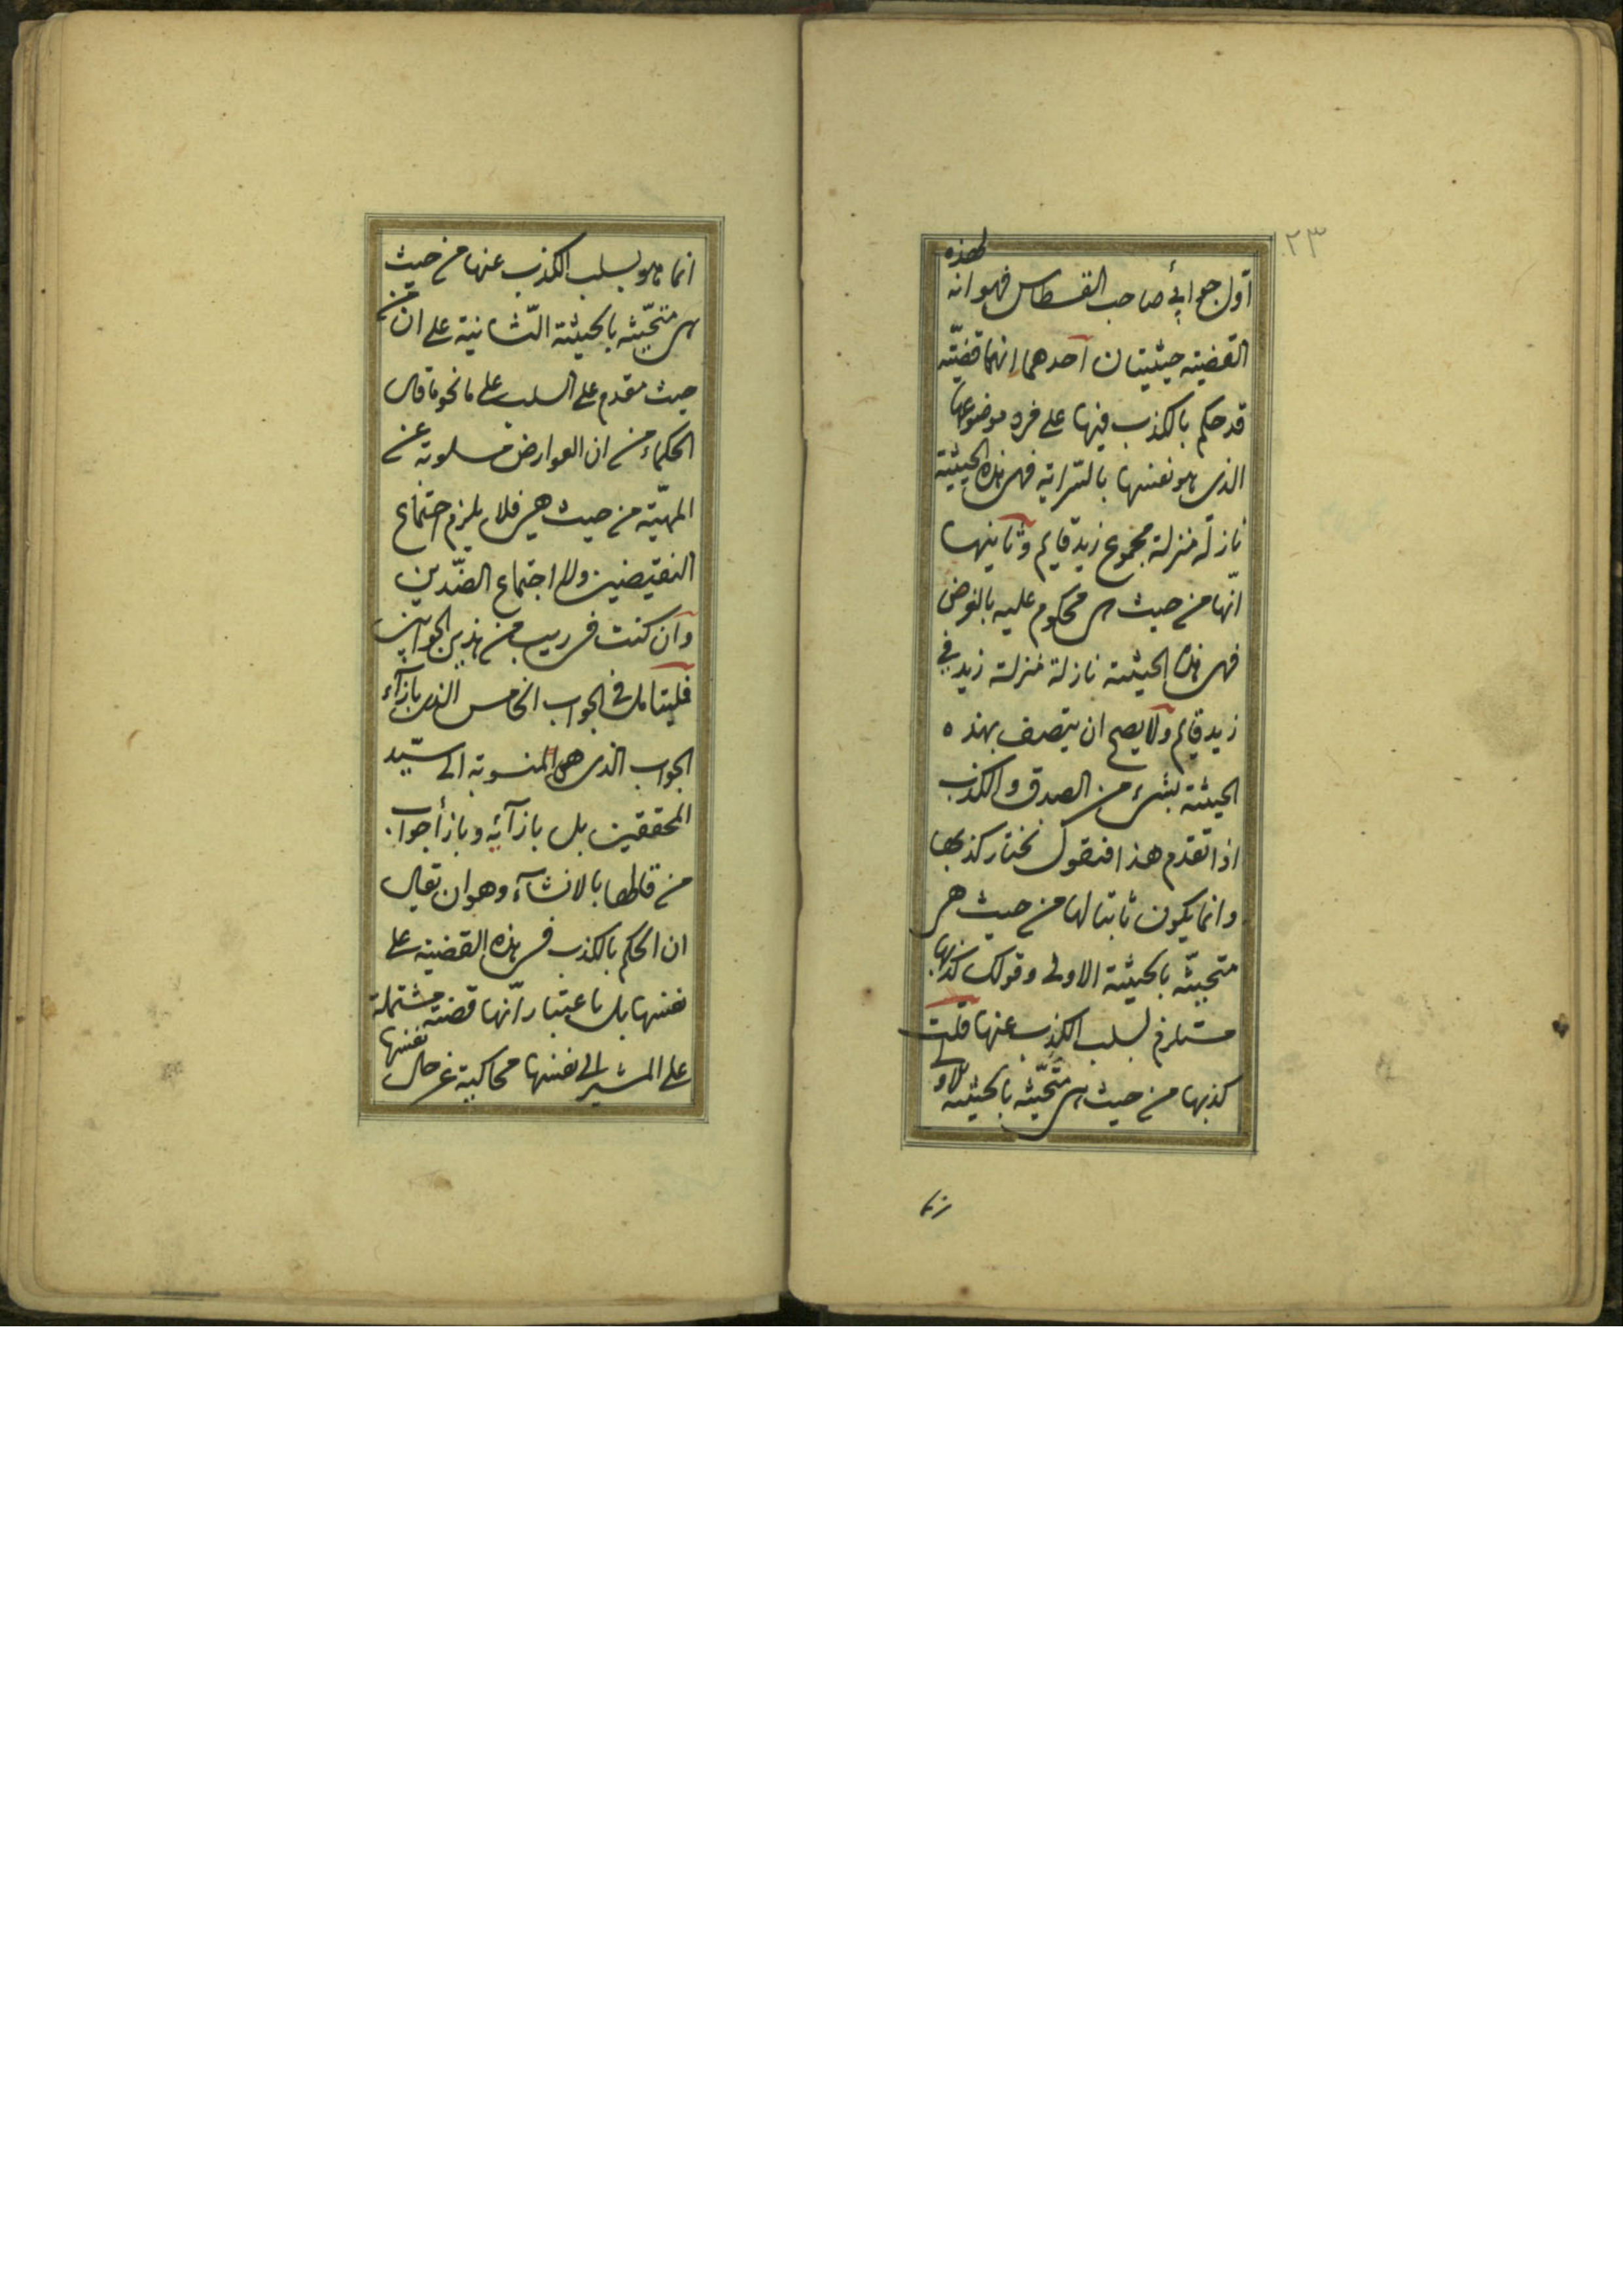 ٢٣
اول جوابي صاحب القسطاس فهو انه لهذه
القضية حيثيتان احدهما انها قضية
قد حكم بالكذب فيها على فرد موضوعها
الذى هو نفسها بالسراية فهى بهذه الحيثية
نازلة منزلة مجموع زيد قايم وثانيتها
انها من حيث هى محكوم عليه بالفرض
فهى بهذه الحيثية نازلة منزلة زيد في
زيد قايم ولا يصح ان يتصف بهذه
الحيثية بشىء من الصدق والكذب
اذا تقدم هذا فنقول نختار كذبها
وانما يكون ثابتا لها من حيث هى
متحيثه بالحيثية الاولى وقولك كذبها
مستلزم لسلب الكذب عنها قلت
كذبها من حيث هى متحيثه بالحيثية الاو
انما هو لسلب الكذب عنها من حيث
هى متحيثه بالحيثية الثانية على ان من
حيث مقدم على السلب على ما نحو ما قال
الحكماء من ان العوارض مسلوبة عن
المهية من حيث هي فلا يلزم اجتماع
النقيضين ولا اجتماع الضدين
وان كنت فى ريب من هذين الجوابين
فليتامل في الجواب الخامس الذى بازآء
الجواب الذى هو المنسوبة الى سيد
المحققين بل بازآئه وبازأ جواب
من قاطها بالانشآء وهو ان يقال
ان الحكم بالكذب فى هذه القضية على
نفسها بل باعتبار انها قضية مشتملة
على المشير الى نفسها محاكية عن حال نفسها